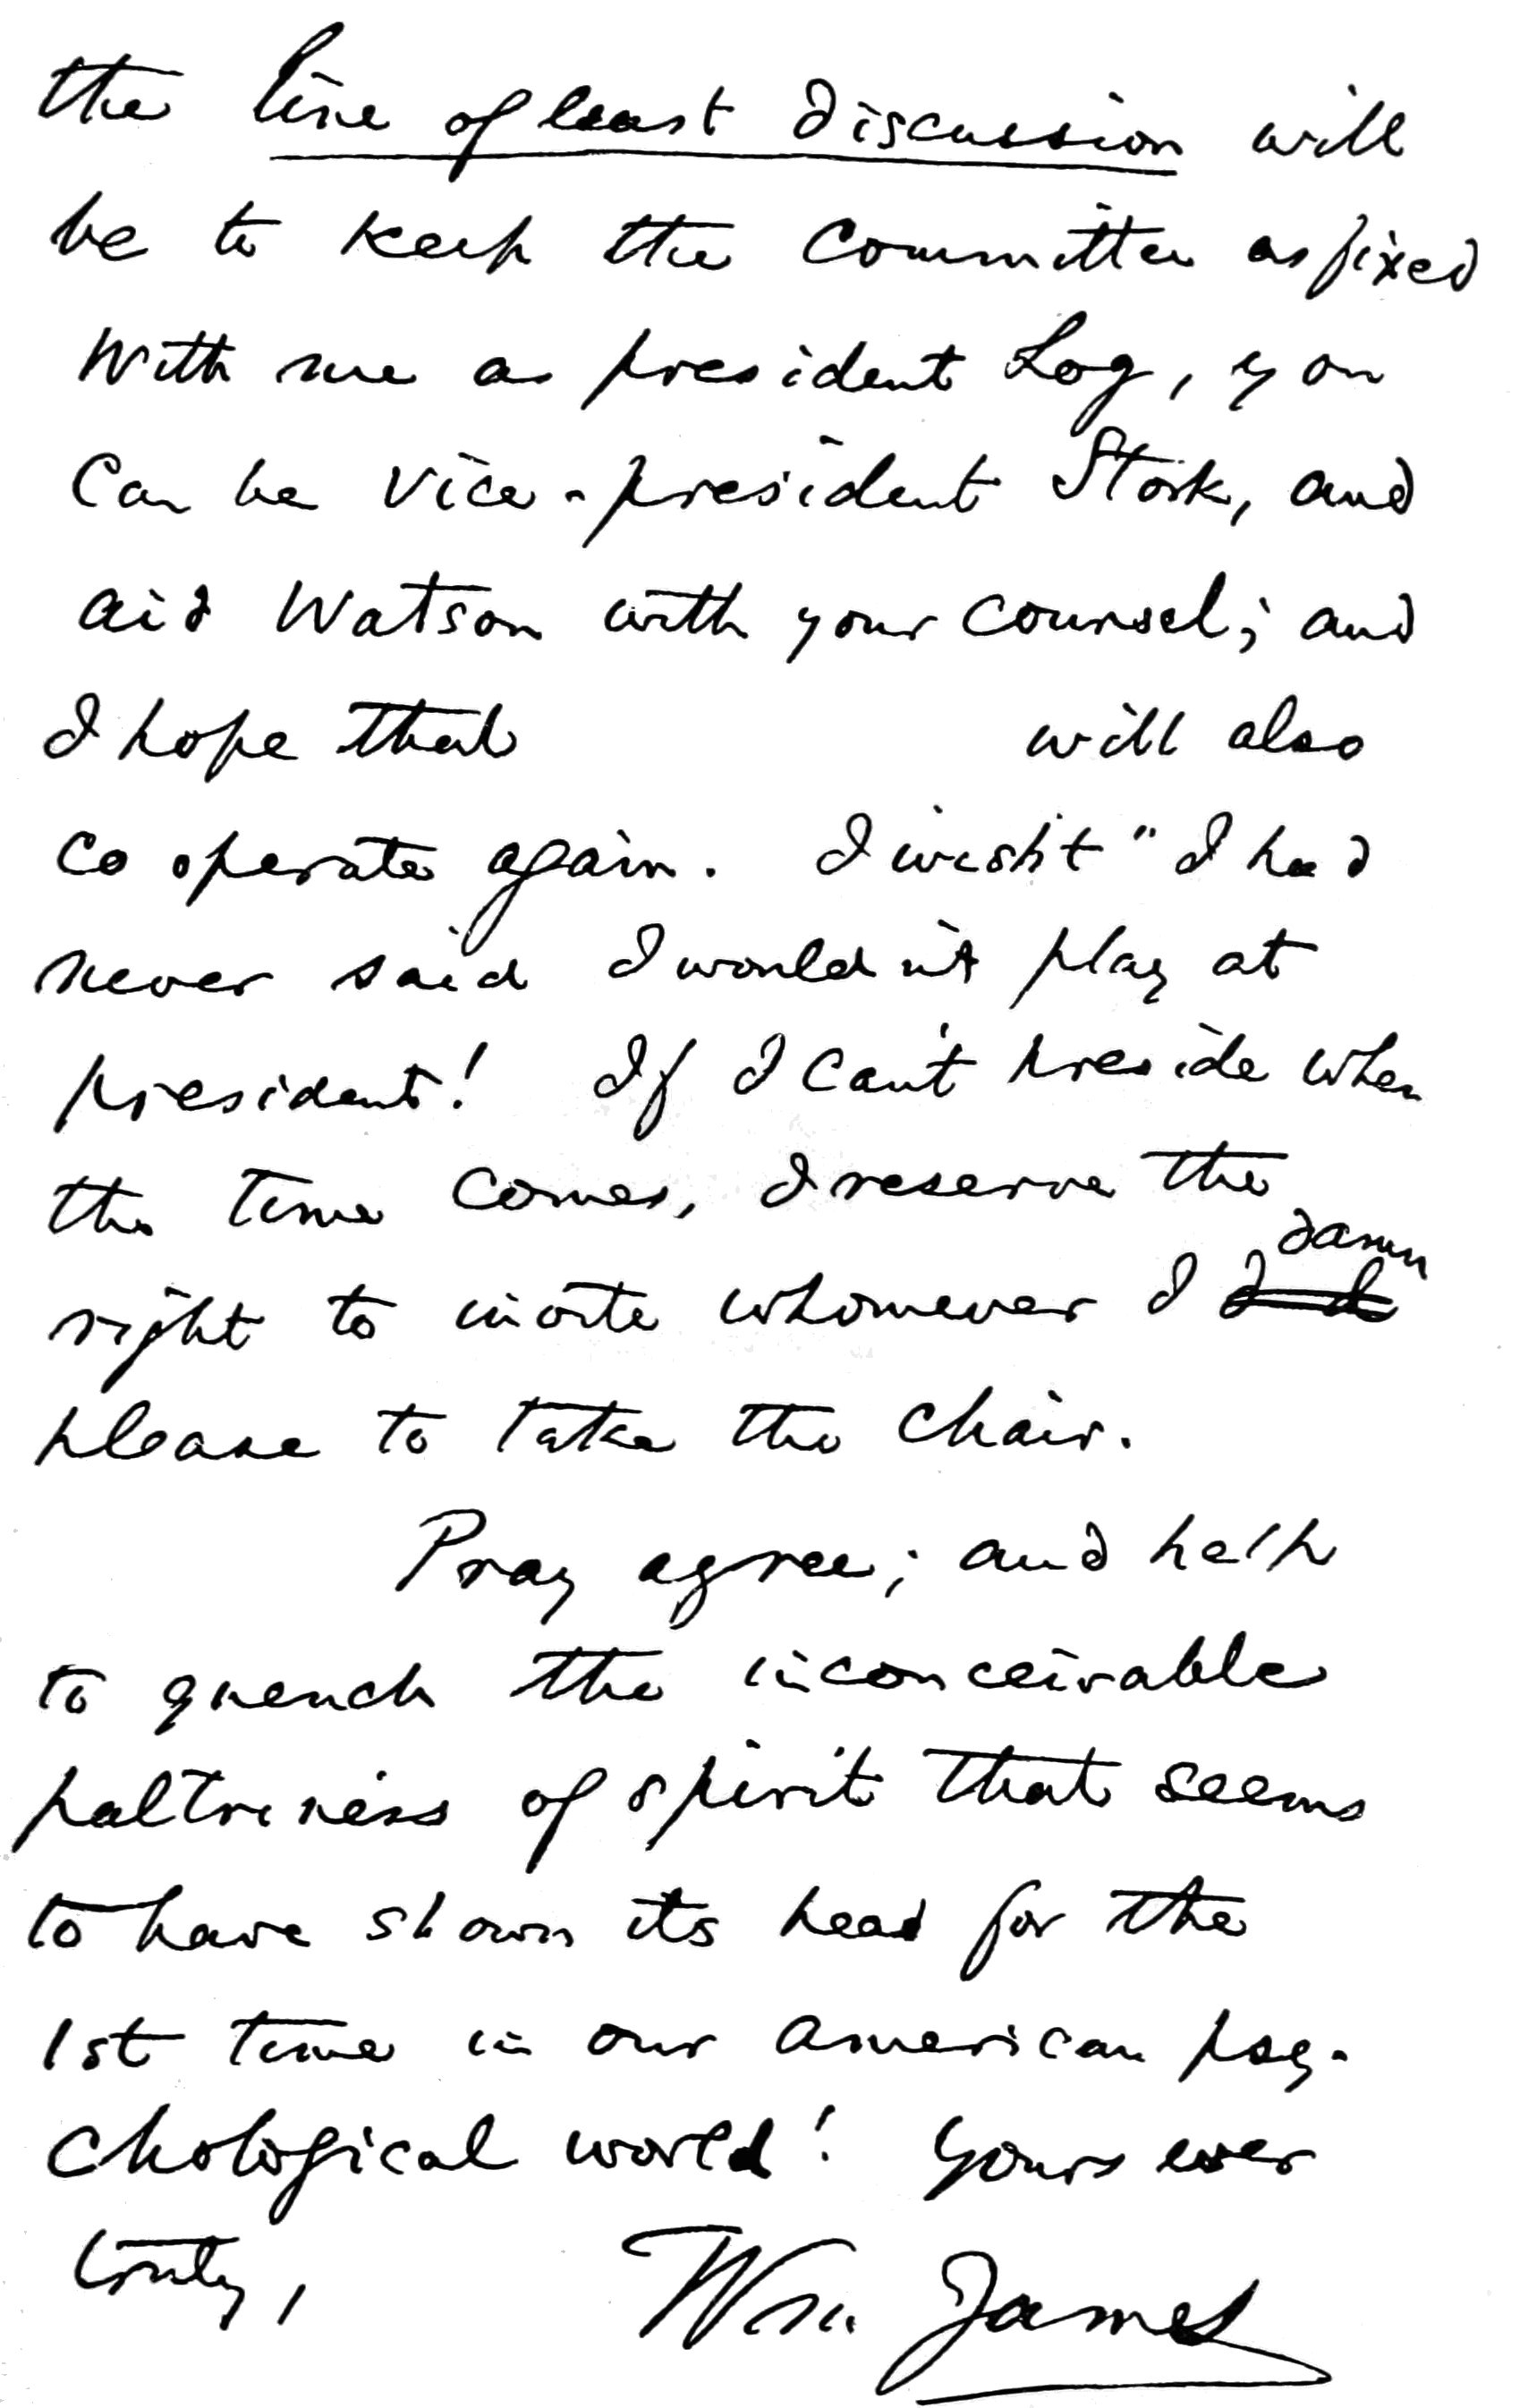 the line of least discussion will
be to keep the Committee as fixed
With me as president Log, you
Can be Vice-president Stork, and
aid Watson with your counsel; and
I hope that will also
co operate again. I wisht" I had
never said I wouldn't play at
president! If I can't preside when
the time comes, I reserve the
damn
right to invite whomever I
please to take the chair.
Pray agree; and help
to quench the inconceivable
paltriness of spirit that seems
to have shown its head for the
1st time in our american psy-
chological world! Yours ever
truly, Wm. James